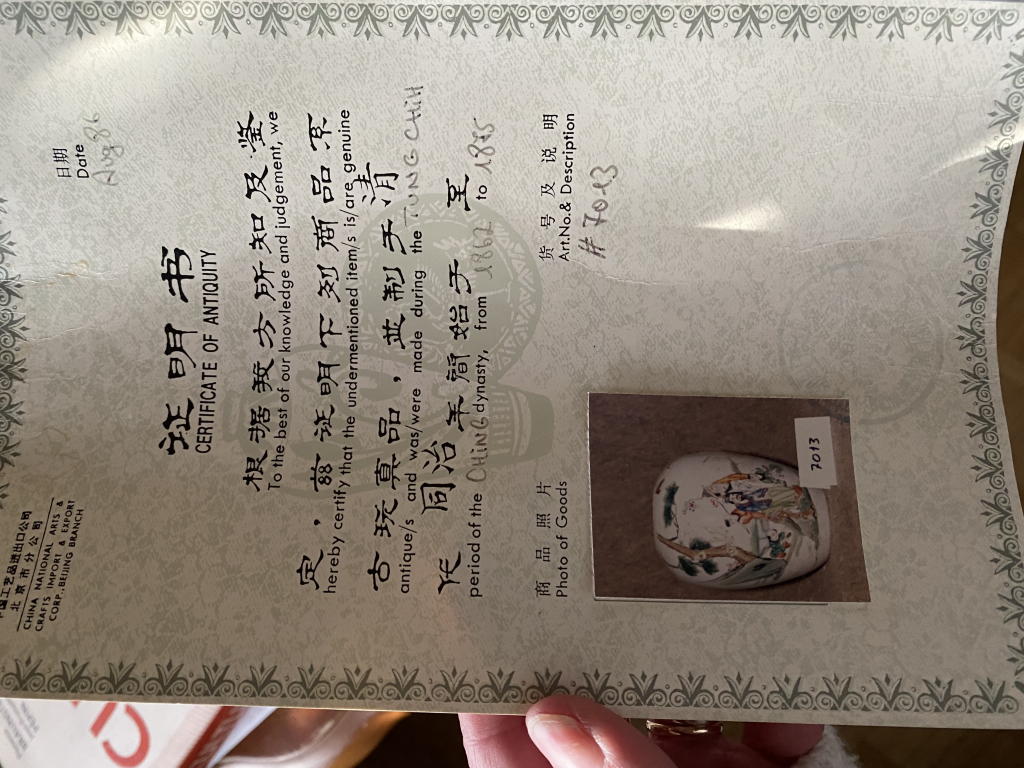 中国工艺品进出口公司
北京市分公司
CHINA NATIONAL ARTS &
CRAFTS IMPORT & EXPORT
CORP., BEIJING BRANCH
日期
Date
Aug 86
证明书
CERTIFICATE OF ANTIQUITY
根据我方所知及鉴
To the best of our knowledge and judgement, we
定，兹证明下列商品系
hereby certify that the undermentioned item/s is/are genuine
古玩真品，並制于清
antique/s and was/were made during the TUNG CHIH
代同治年間始于 至
period of the CHING dynasty, from 1862 to 1875
商品照片
Photo of Goods
货号及说明
Art.No.& Description
# 7013
7013